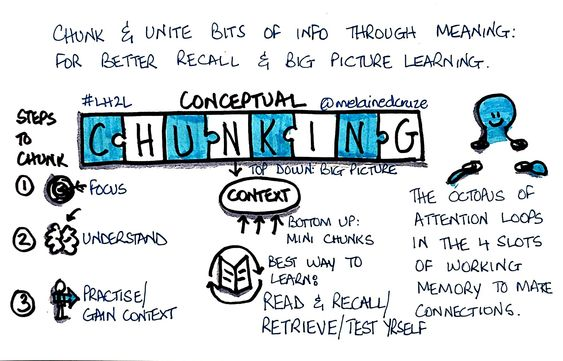 CHUNK & UNITE BITS OF INFO THROUGH MEANING:
FOR BETTER RECALL & BIG PICTURE LEARNING.
#LH2L
CONCEPTUAL
@melainedcruze
CHUNKING
STEPS
TO
CHUNK
① FOCUS
② UNDERSTAND
③ PRACTISE/
GAIN CONTEXT
TOP DOWN: BIG PICTURE
CONTEXT
BOTTOM UP:
MINI CHUNKS
BEST WAY TO
LEARN:
READ & RECALL/
RETRIEVE/TEST YRSELF
THE OCTOPUS OF
ATTENTION LOOPS
IN THE 4 SLOTS
OF WORKING
MEMORY TO MAKE
CONNECTIONS.